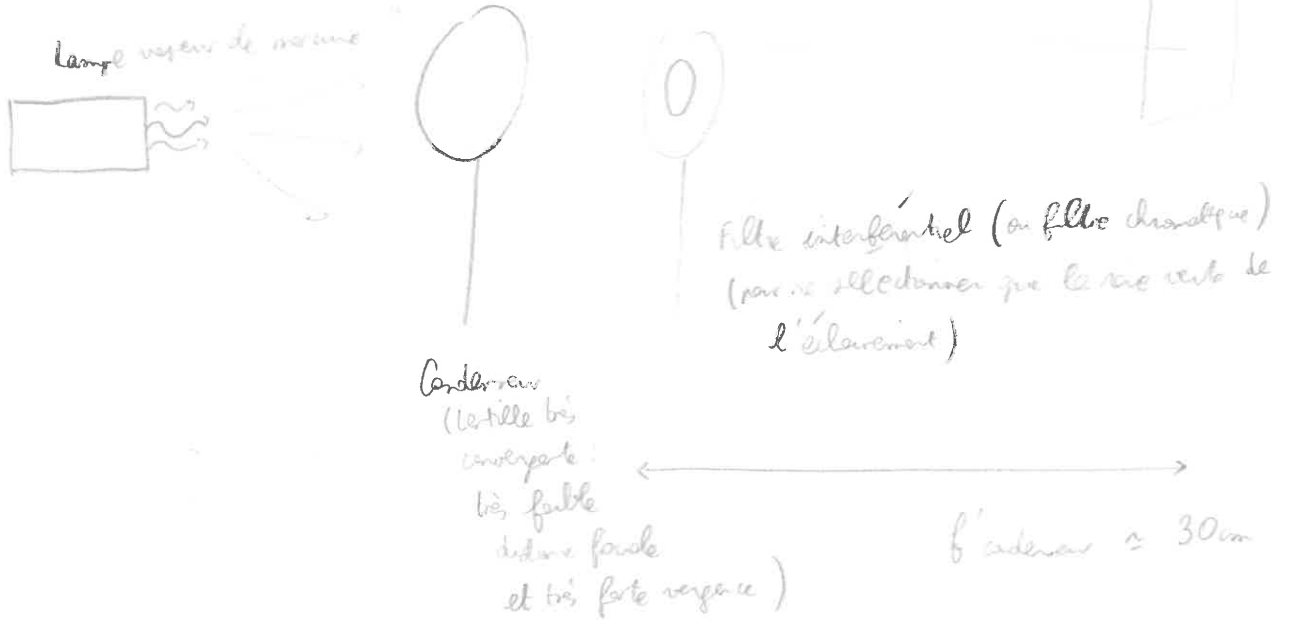 Lampe vapeur de mercure
Filtre interférentiel (ou filtre chromatique)
(pour ne sélectionner que la raie verte de
l'éclairement)
Condenseur
(lentille très
convergente :
très faible
distance focale
et très forte vergence)
f' condenseur ≃ 30cm